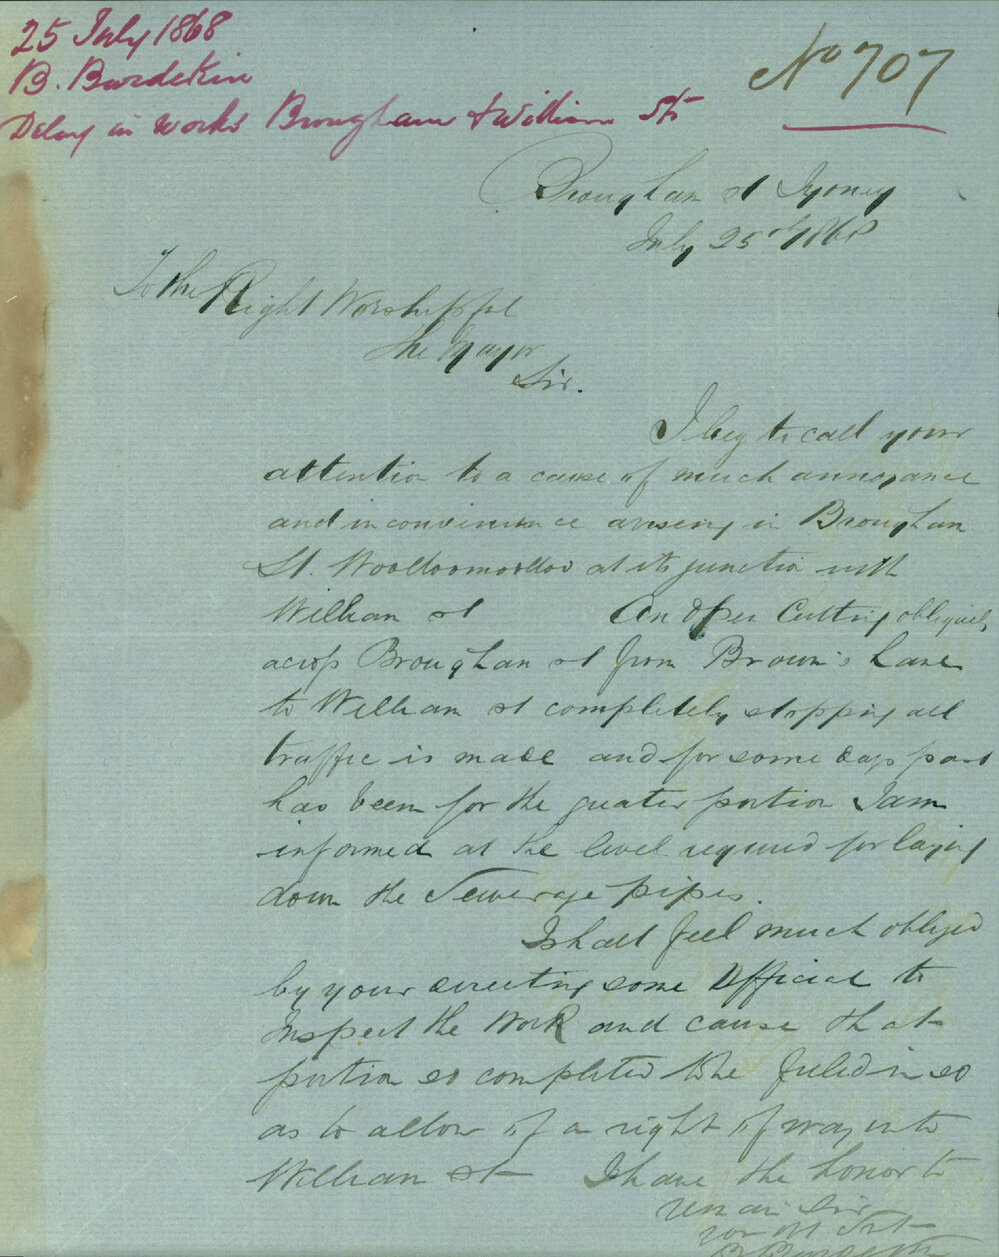 25 July 1868
B. Burdekin
Delay in works Brougham & William Sts
No 707
Brougham st Sydney
July 25th 1868
To the Right Worshipful
the Mayor
Sir.
I beg to call your
attention to a cause of much annoyance
and inconvenience arising in Brougham
St. Woolloomoolloo at its junction with
William st An Open Cutting obliquely
across Brougham st from Brown's Lane
to William st completely stopping all
traffic is made and for some days past
has been for the greater portion I am
informed at the level required for laying
down the Sewerage pipes.
I shall feel much obliged
by your directing some Official to
Inspect the Work and cause that
portion so completed to be filled in so
as to allow of a right of way into
William st I have the honor to
remain Sir
your ob Svt